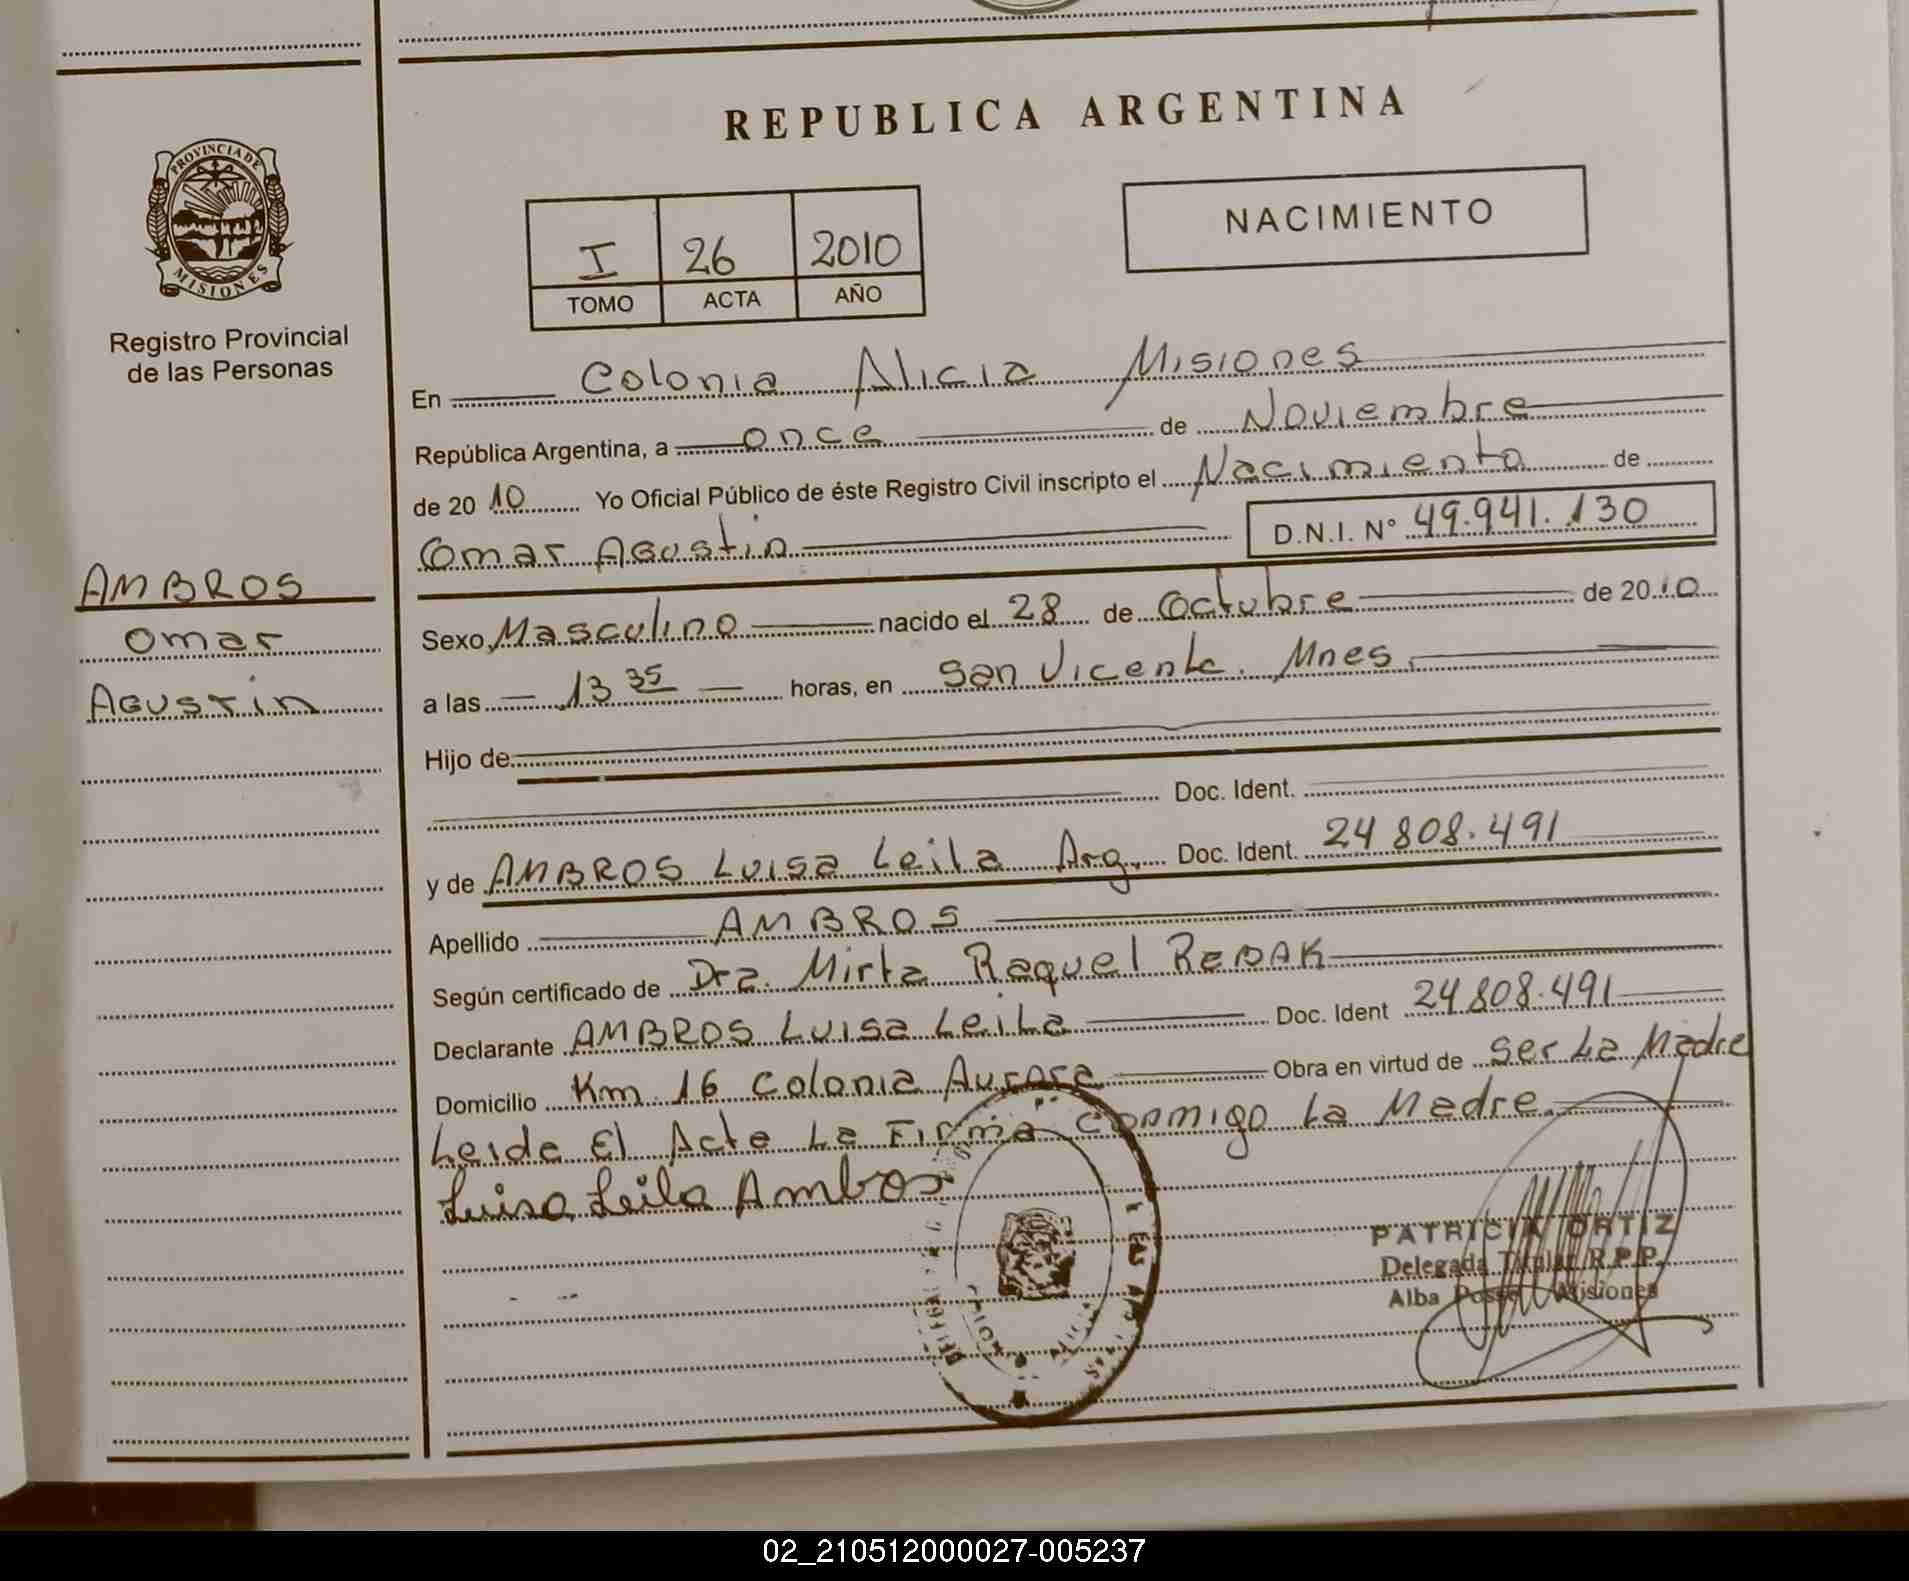 REPUBLICA ARGENTINA
PROVINCIA DE
MISIONES
Registro Provincial
de las Personas
I 26 2010
TOMO ACTA AÑO
NACIMIENTO
AMBROS
Omar
Agustín
En Colonia Alicia Misiones
República Argentina, a once de Noviembre
de 2010 Yo Oficial Público de éste Registro Civil inscripto el Nacimiento de
Omar Agustin D.N.I. N° 49.941.130
Sexo Masculino nacido el 28 de Octubre de 2010
a las 13 35 horas, en San Vicente. Mnes.
Hijo de
Doc. Ident.
y de AMBROS Luisa Leila Arg. Doc. Ident. 24 808.491
Apellido AMBROS
Según certificado de Dra. Mirta Raquel REDAK
Declarante AMBROS Luisa Leila Doc. Ident 24808.491
Domicilio Km 16 Colonia Aurora Obra en virtud de ser La Madre
Leida El Acta La Firma conmigo La Madre.
Luisa Leila Ambos
PATRICIA ORTIZ
Delegada Titular R.P.P.
Alba Posse Misiones
02_210512000027-005237